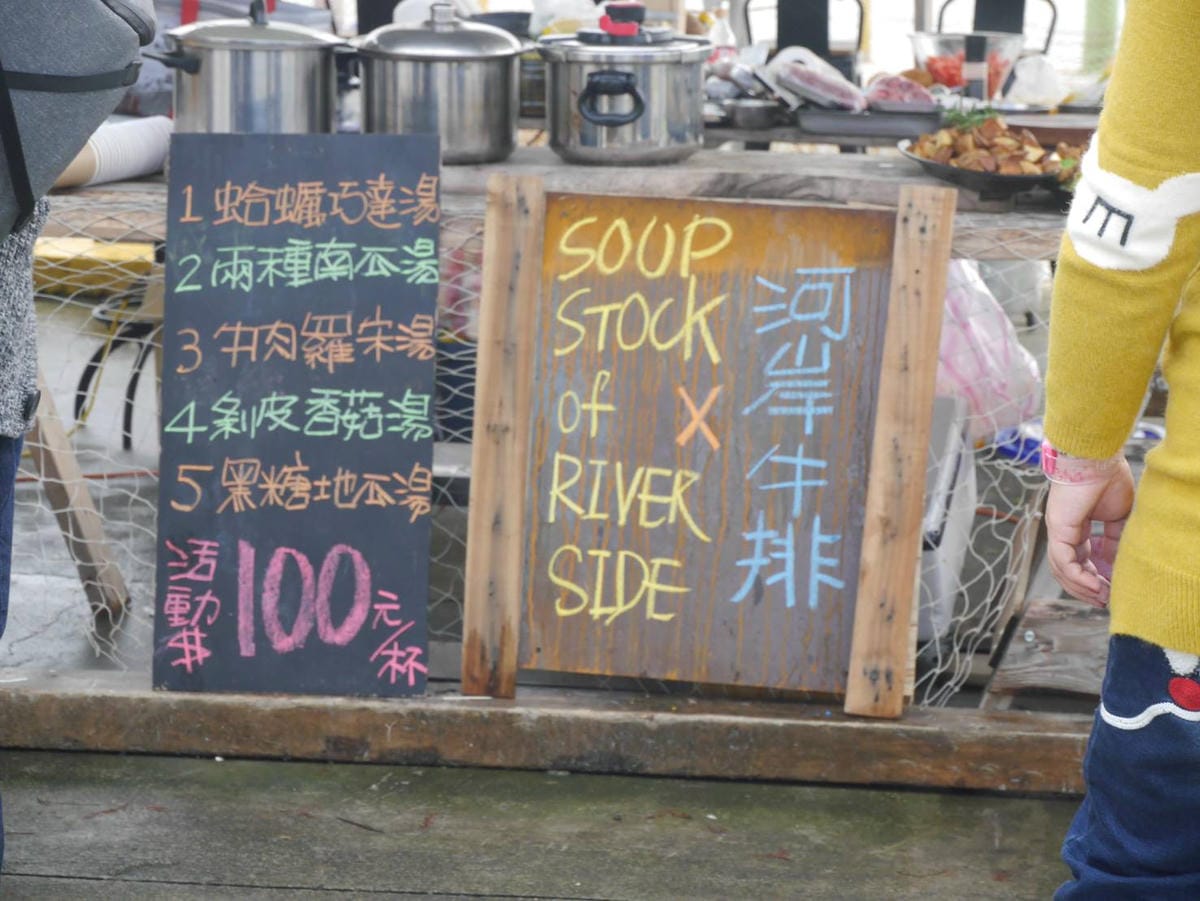 1 蛤蠣巧達湯
2 兩種南瓜湯
3 牛肉羅宋湯
4 剝皮香菇湯
5 黑糖地瓜湯
活動
100元/杯
SOUP
STOCK
of
X
RIVER
SIDE
河岸牛排